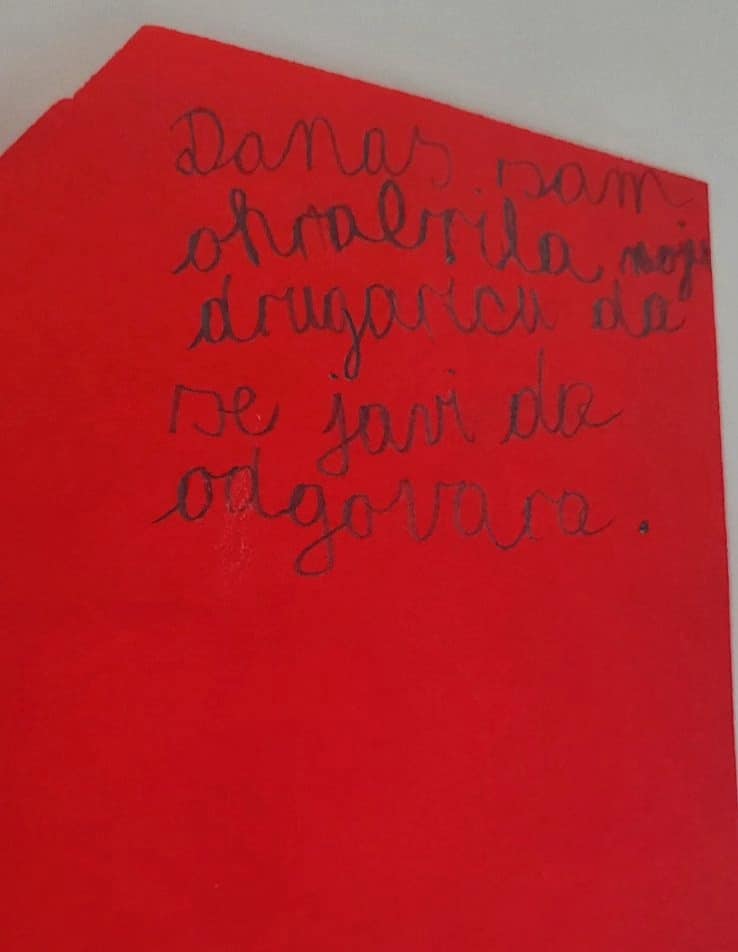 Danas sam
ohrabrila moju
drugaricu da
se javi da
odgovara.